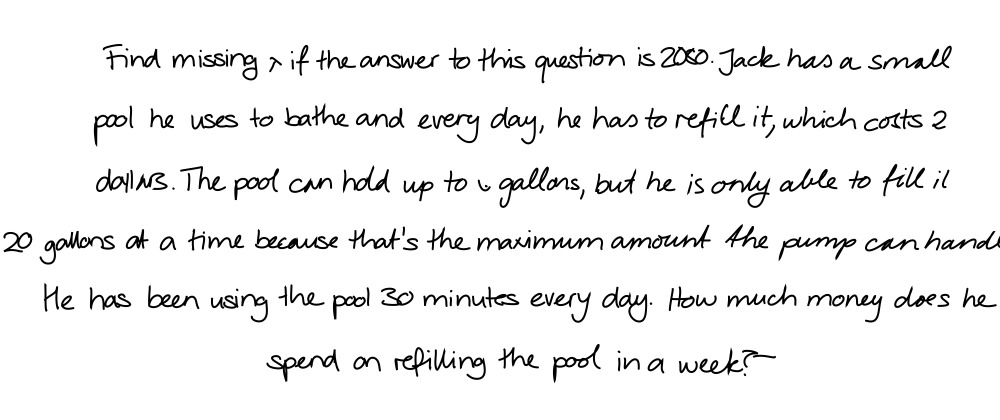 Find missing x if the answer to this question is 2000. Jack has a small
pool he uses to bathe and every day, he has to refill it, which costs 2
dollars. The pool can hold up to gallons, but he is only able to fill it
20 gallons at a time because that's the maximum amount the pump can handl
He has been using the pool 30 minutes every day. How much money does he
spend on refilling the pool in a week?